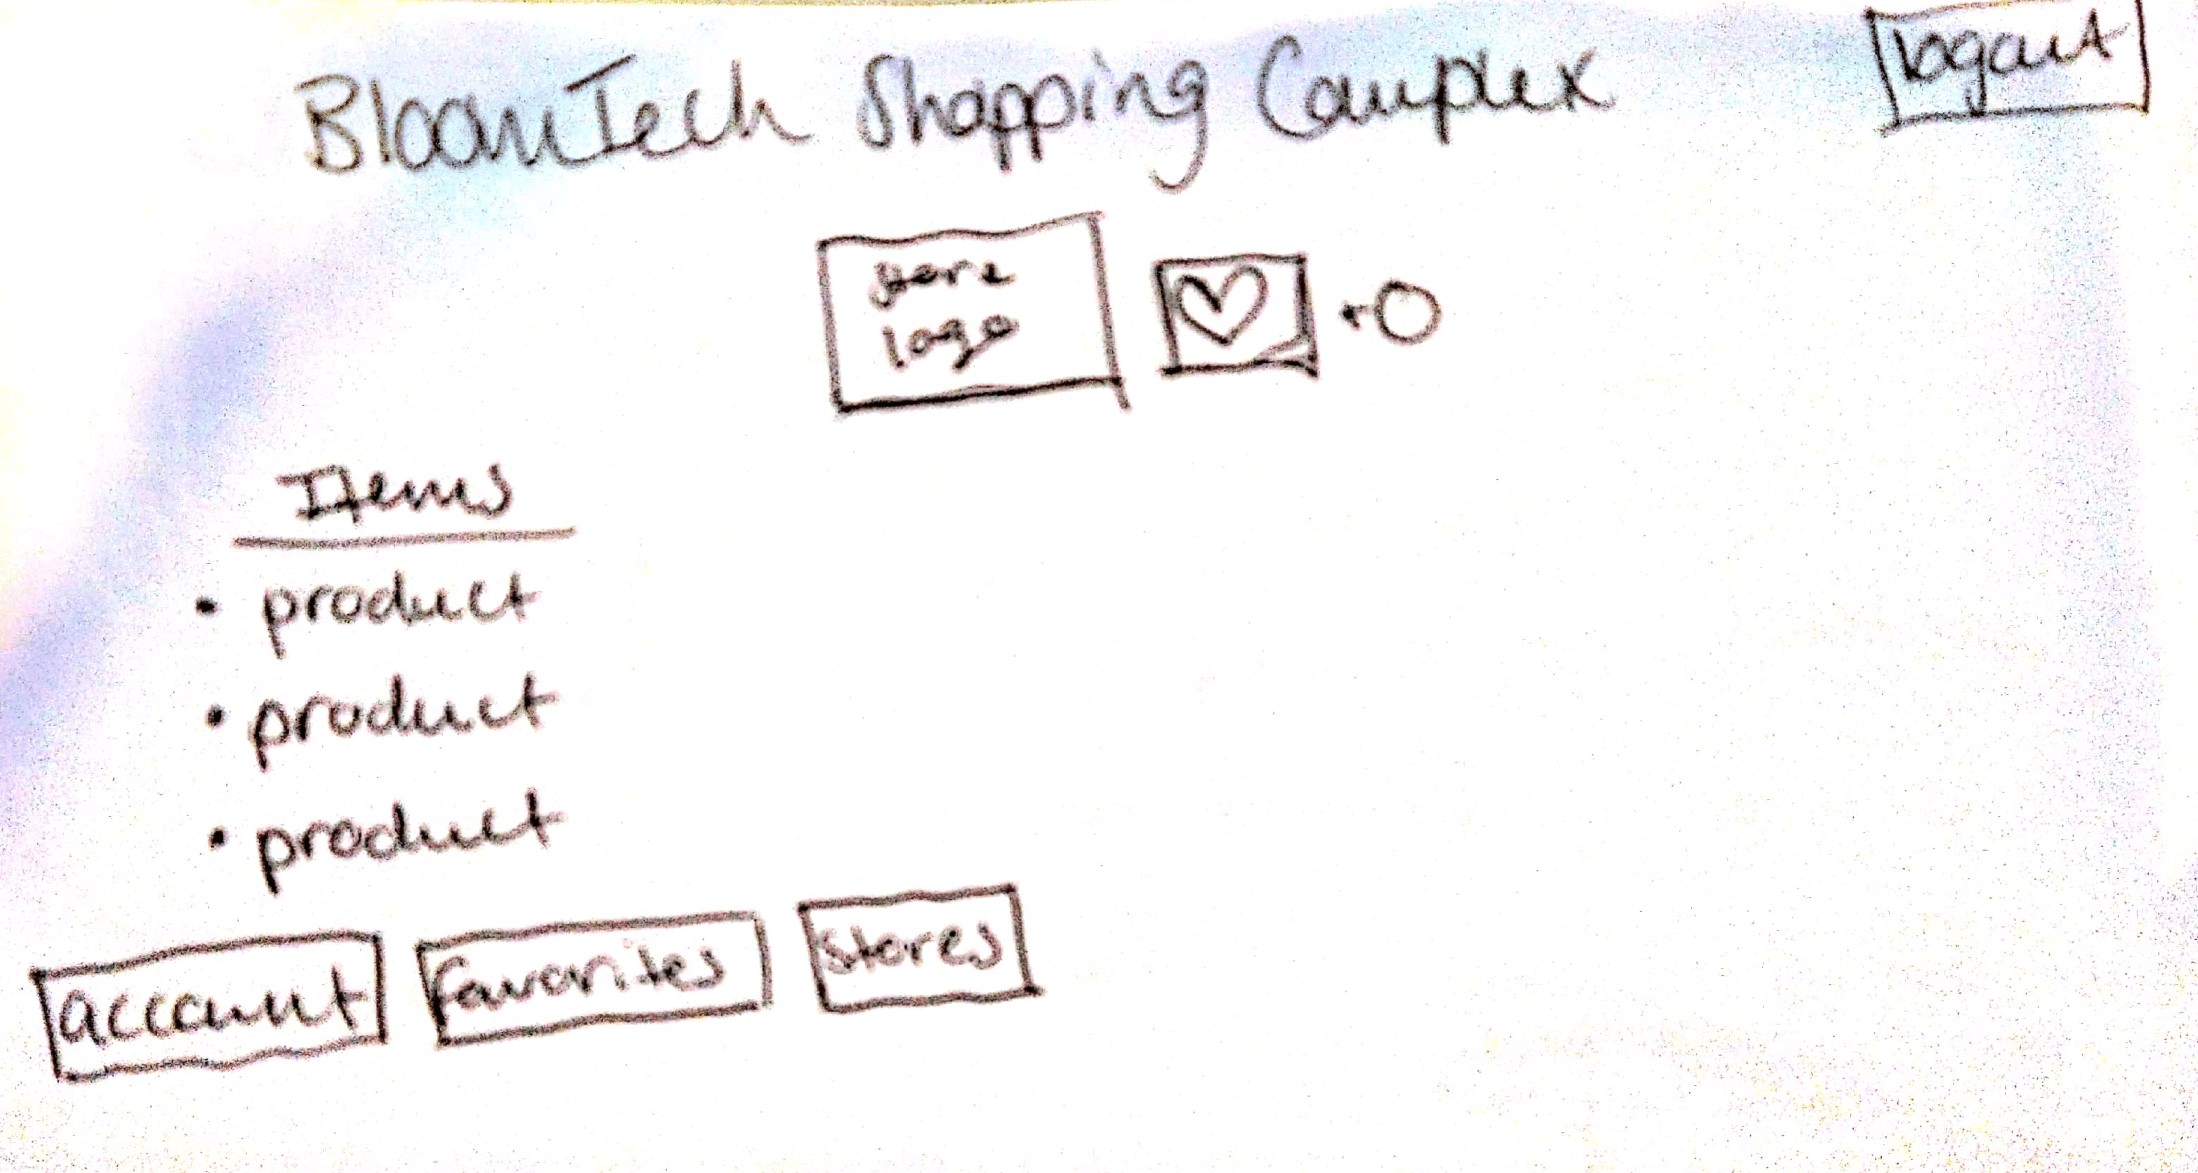 BloomTech Shopping Complex
logout
store
logo
Items
• product
• product
• product
account
Favorites
Stores